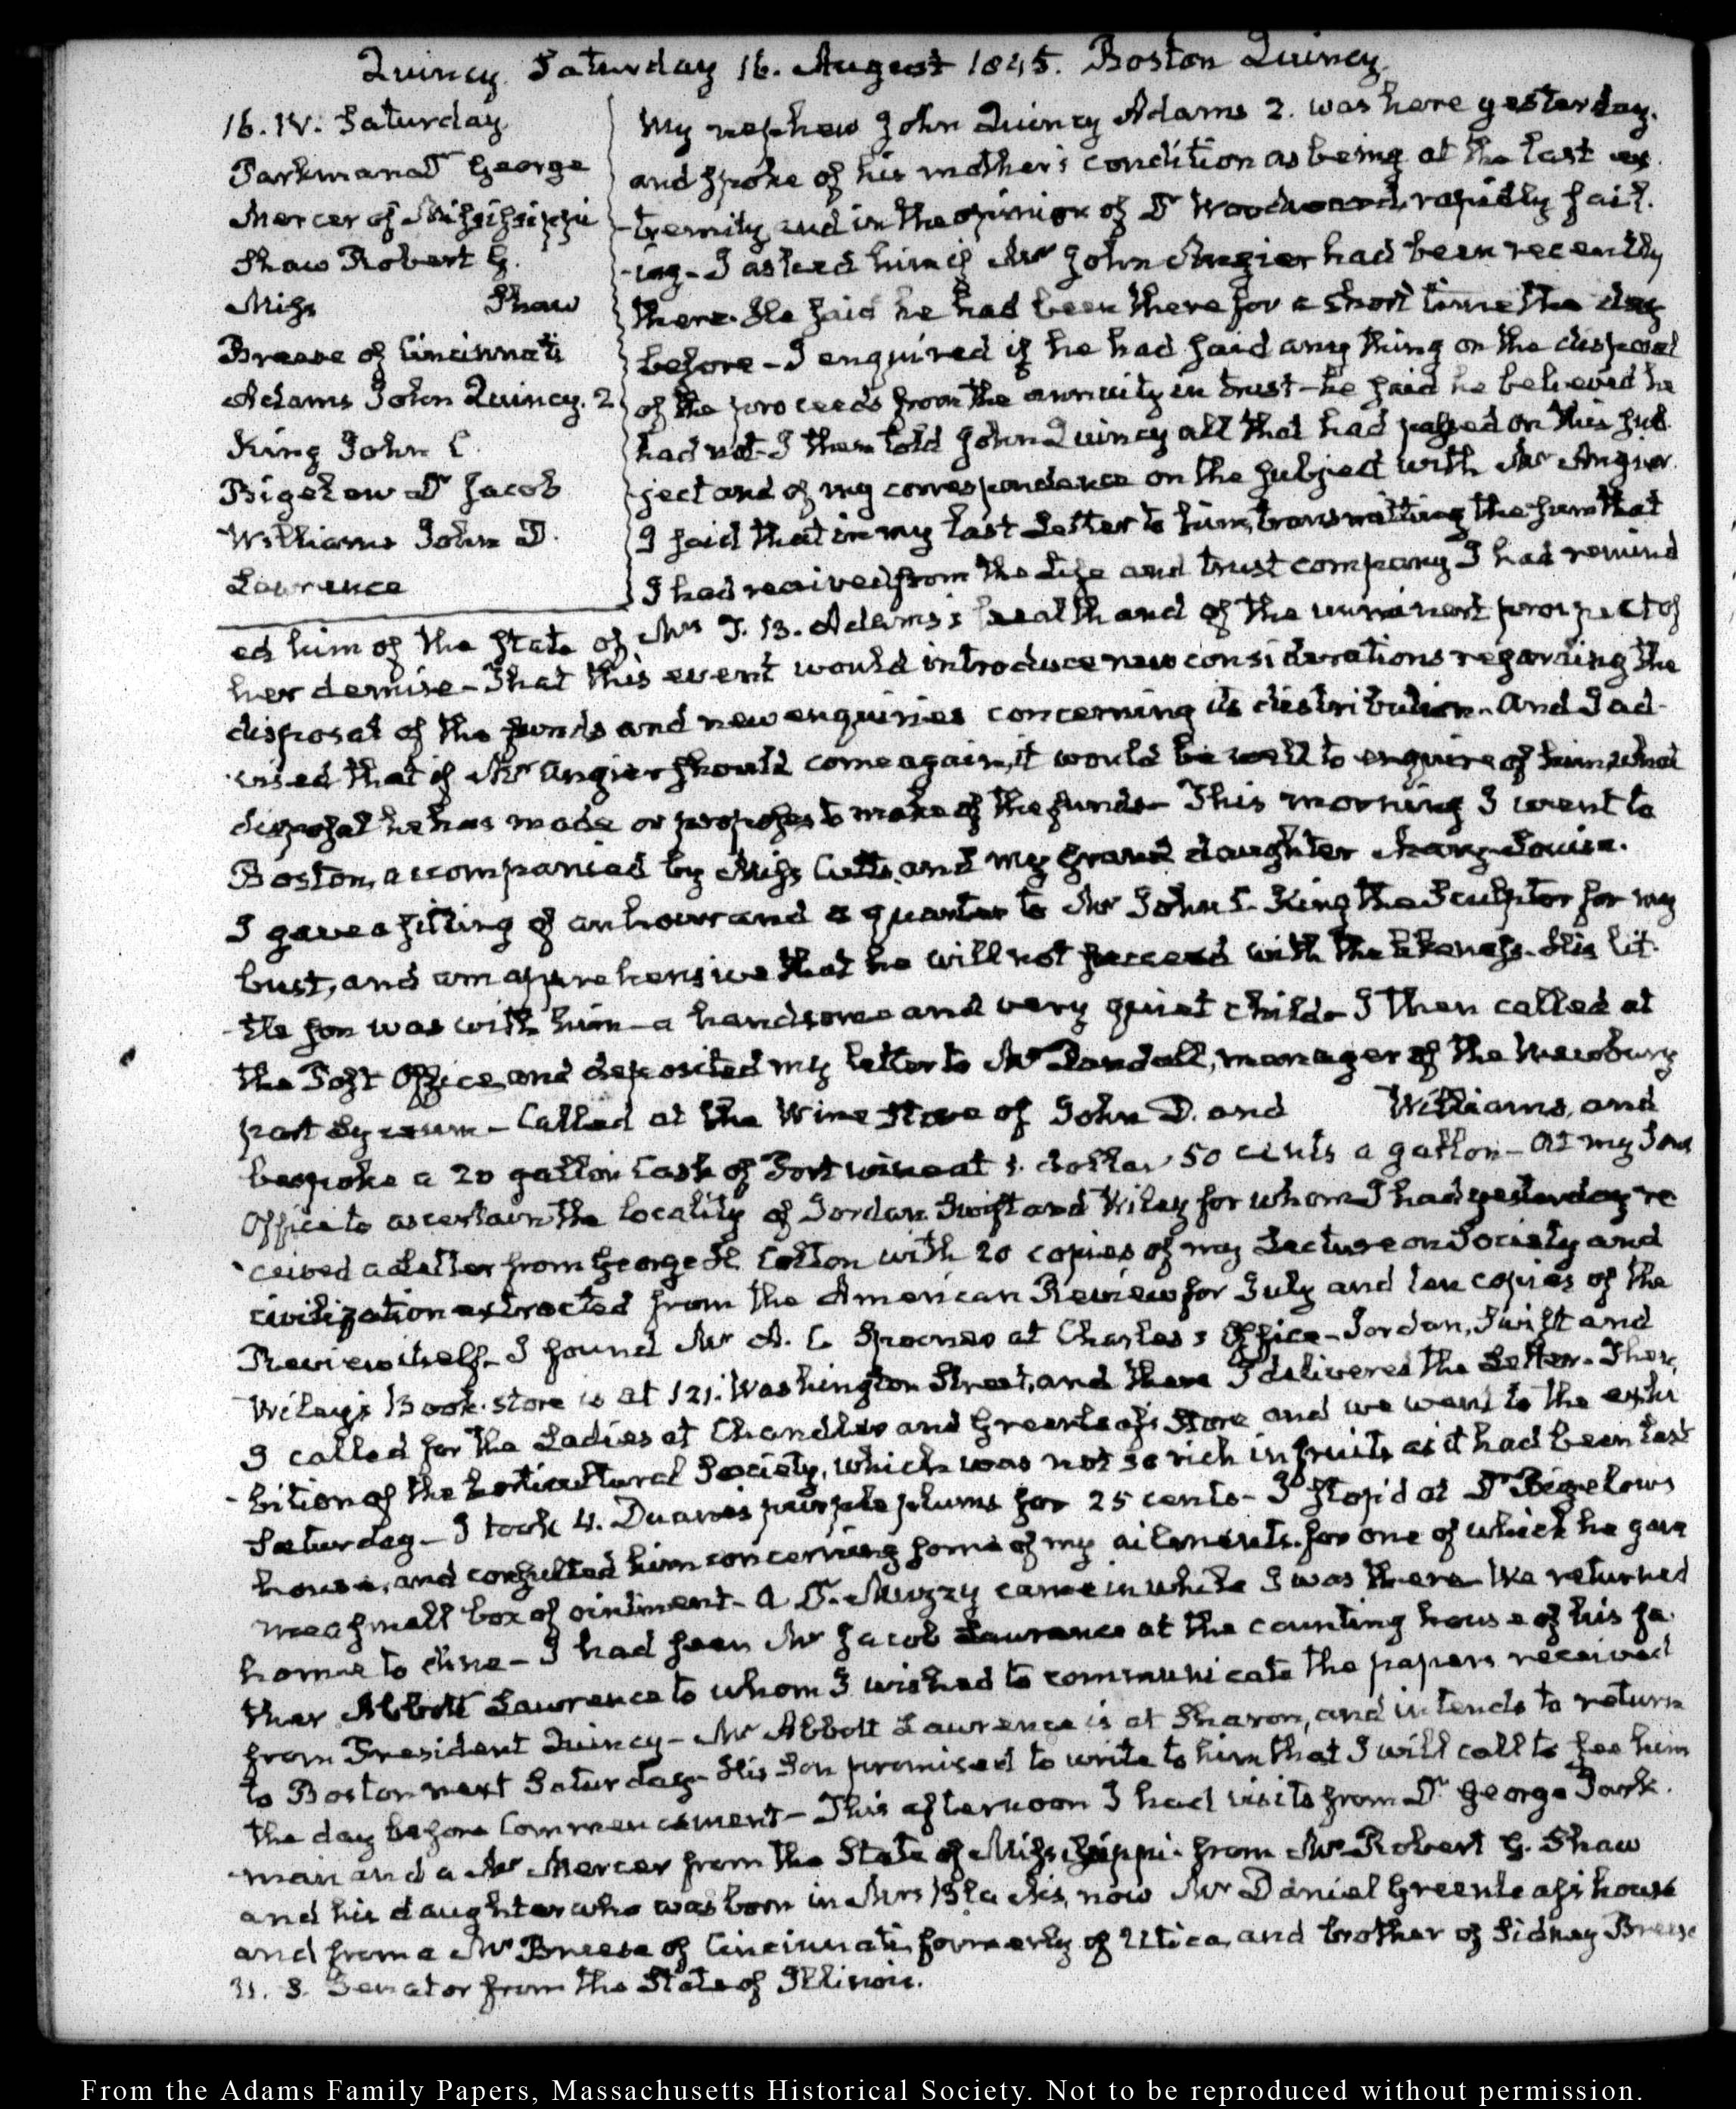 Quincy. Saturday 16. August 1845. Boston Quincy
16. IV. Saturday
Parkman Dr George
Mercer of Missisippi
Shaw Robert G.
Miss Shaw
Breese of Cincinnati
Adams John Quincy. 2
King John C.
Bigelow Dr Jacob
Williams John D.
Lawrence
My nephew John Quincy Adams 2. was here yesterday.
and spoke of his mother's condition as being at the last ex
-tremity and in the opinion of Dr Woodward, rapidly fail.
-ing - I asked him if Mr John Angier had been recently
there. He said he had been there for a short time the day
before - I enquired if he had said any thing on the disposal
of the proceeds from the annuity in trust - he said he believed he
had not - I then told John Quincy all that had passed on this sub
-ject and of my correspondence on the subject with Mr Angier.
I said that in my last Letter to him, transmitting the sum that
I had received from the Life and trust company I had remind
ed him of the state of Mrs T. B. Adams's health and of the imminent prospect of
her demise - That this event would introduce new considerations regarding the
disposal of the funds and new enquiries concerning its distribution. And I ad-
vised that if Mr Angier should come again, it would be well to enquire of him, what
disposal he has made or proposes to make of the funds - This morning I went to
Boston, accompanied by Miss Cutts, and my grand daughter Mary-Louisa.
I gave a sitting of an hour and a quarter to Mr John C. King the Sculptor for my
bust, and am apprehensive that he will not succeed with the likeness. His lit-
-tle son was with him - a handsome and very quiet child - I then called at
the Post Office, and deposited my letter to Mr Randall, manager of the Newbury
port Lyceum - Called at the Wine Store of John D. and Williams, and
bespoke a 20 gallon Cask of Port wine at 1. dollar 50 cents a gallon - At my Sons
Office to ascertain the locality of Jordan Swift and Wiley for whom I had yesterday re
-ceived a Letter from George H. Colton with 20 copies of my Lecture on Society and
civilization extracted from the American Review for July and ten copies of the
Review itself. I found Mr A. C. Spooner at Charles's Office - Jordan, Swift and
Wiley's Book-store is at 121. Washington Street, and there I delivered the Letter. Then
I called for the Ladies at Chandler and Greenleaf's Store and we went to the exhi
-bition of the Horticultural Society, which was not so rich in fruits as it had been last
Saturday - I took 4. Duane's purple plums for 25 cents - I stop'd at Dr Bigelows
house, and consulted him concerning some of my ailments. for one of which he gave
me a small box of ointment - A Dr Muzzy came in while I was there - We returned
home to dine - I had seen Mr Jacob Lawrence at the counting house of his fa.
ther Abbott Lawrence to whom I wished to communicate the papers received
from President Quincy - Mr Abbott Lawrence is at Sharon, and intends to return
to Boston next Saturday - His Son promised to write to him that I will call to see him
the day before Commencement - This afternoon I had visits from Dr George Park.
-man and a Mr Mercer from the State of Missisippi - from Mr Robert G. Shaw
and his daughter who was born in Mrs now Mr Daniel Greenleaf's house
and from a Mr Breese of Cincinnati, formerly of Utica, and brother of Sidney Breese
U. S. Senator from the State of Illinois.
From the Adams Family Papers, Massachusetts Historical Society. Not to be reproduced without permission.